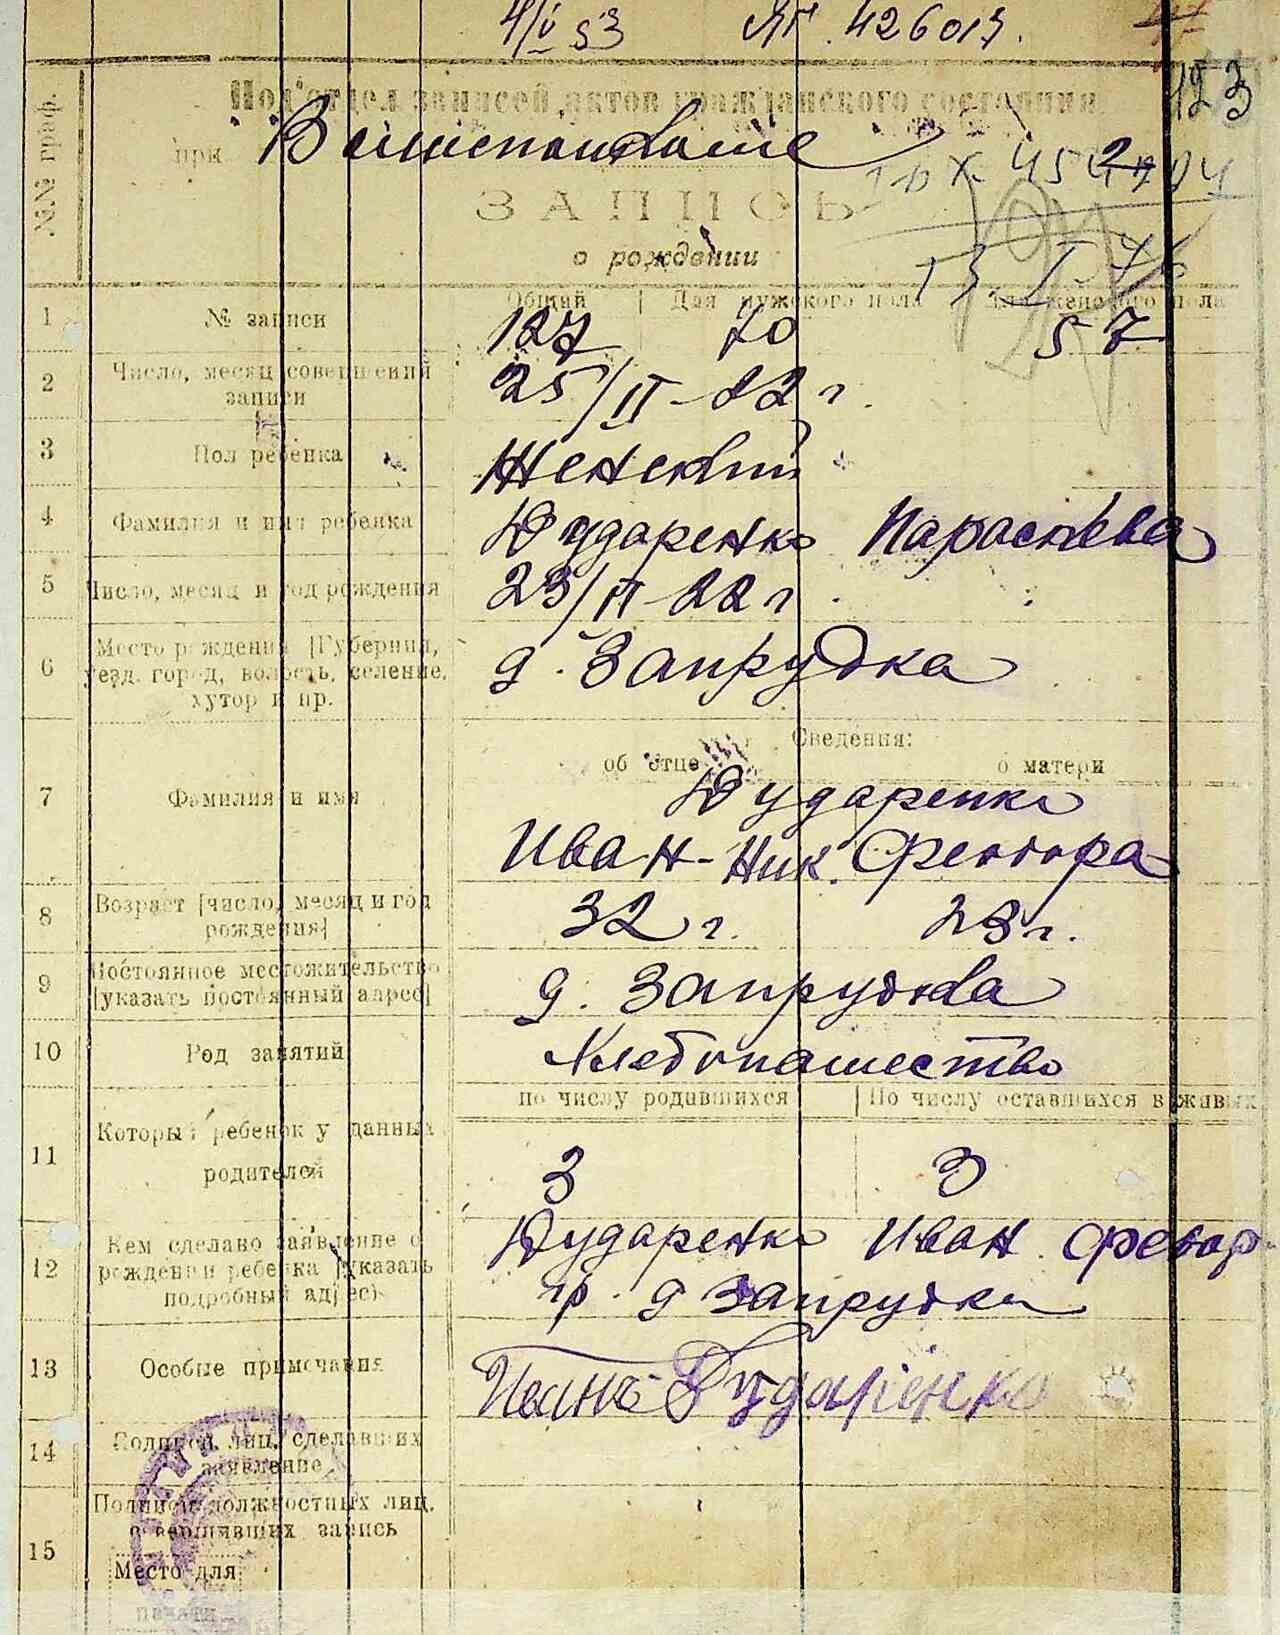 4/V 53 ЯГ. 426013.
123
№№ граф.
Подотдел записей актов гражданского состояния
при
ЗАПИСЬ
о рождении
Общий | Для мужского пола | Для женского пола
1 № записи 127 70 57
2 Число, месяц совершений записи 25/II-22 г.
3 Пол ребенка Женский
4 Фамилия и имя ребенка Дударенко Параскева
5 Число, месяц и год рождения 23/II-22 г
6 Место рождения [Губерния, уезд, город, волость, селение, хутор и пр. д. Запрудка
Сведения:
об отце о матери
7 Фамилия и имя Дударенко
Иван-Ник. Феодора
8 Возраст [число, месяц и год рождения] 32 г. 23 г.
9 Постоянное местожительство [указать постоянный адрес] д. Запрудка
10 Род занятий Хлебопашество
по числу родившихся | По числу оставшихся в живых
11 Который ребенок у данных родителей 3 3
12 Кем сделано заявление о рождении ребенка [указать подробный адрес] Дударенко Иван Феодор
гр. д Запрудки
13 Особые примечания Иванъ Дударенко
14 Подписи лиц, сделавших заявление
15 Подписи должностных лиц, совершивших запись
Место для
печати